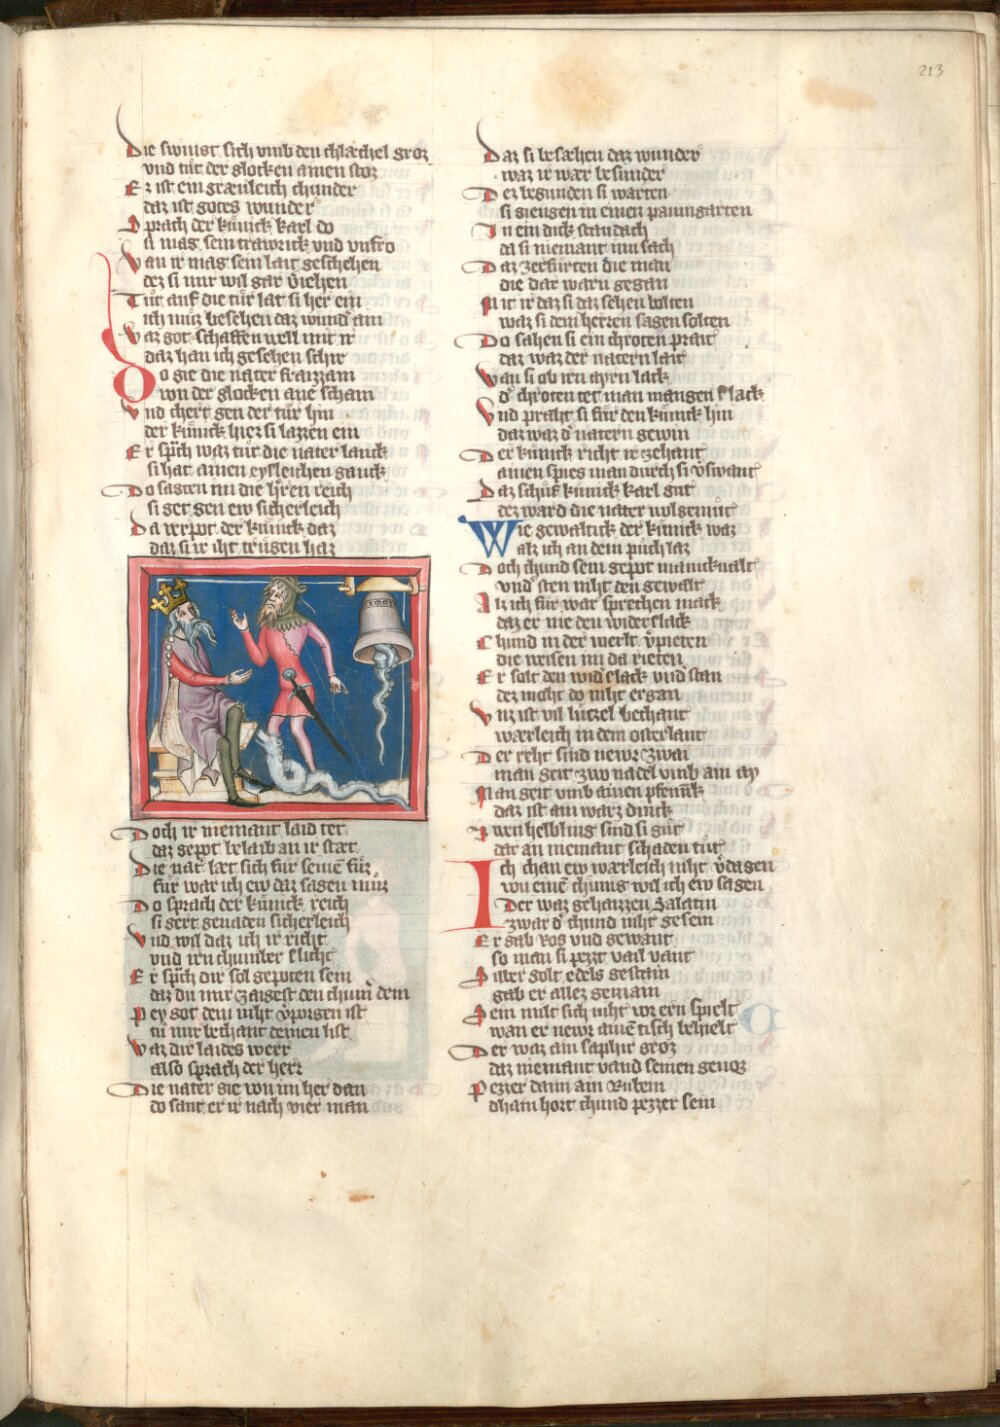 213
Die swinst sich vmb den chlæchel groz
vnd tůt der glocken ainen stoz
Er ist ein græuleich chunder
daz ist gotes wunder
Sprach der kůnick karl do
si mag sein trawrick vnd vnfro
Wan ir mag sein lait geschehen
dez si mir wil gar v̈iehen
Tůt auf die tůr lat si her ein
ich můz besehen daz wund͛ ain
Waz got schaffen well mit ir
daz han ich gesehen schir
Do gie die nater fraizzam
von der glocken ane scham
Vnd chert gen der tůr hin
der kůnick hiez si lazzen ein
Er sp͛ch waz tůt die nater lanck
si hat ainen eysleichen ganck
Do sagten im die h͛ren reich
si get gen ew sicherleich
Da verpot der kůnick daz
daz si ir iht trůgen haz
Doch ir niemant laid tet
daz gepot belaib an ir stæt
Die nat͛ læt sich fůr seine fůz
fůr war ich ew daz sagen můz
Do sprach der kůnick reich
si gert genaden sicherleich
Vnd wil daz ich ir richt
vnd iren chumber slicht
Er sp͛ch dir sol gepoten sein
daz du mir zaigest den chum͛ dein
Pey got dem niht v͛porgen ist
tů mir bechant deinen list
Waz dir laides werr
also sprach der herr
Die nater gie von im her dan
do sant er ir nach vier man
Daz si besæhen daz wunder
waz ir wær besunder
Dez begunden si warten
si giengen in einen paumgarten
In ein dick staudach
da si niemant inn sach
Daz zerfůrten die man
die dar warn gegan
Mit ir daz si daz sehen wolten
waz si dem herren sagen solten
Do sahen si ein chroten prait
daz waz der natern lait
Wan si ob irn ayrn lack
d͛ chroten tet man mangen slack
Vnd praht si fůr den kůnick hin
daz waz d͛ natern gewin
Der kůnick richt ir zehant
ainen spies man durch si v͛swant
Daz schůf kůnick karl gůt
dez ward die nater wolgemůt
Wie gewaltick der kůnick waz
alz ich an dem půch laz
Doch chund sein gepot manickualt
vnd sten niht den gewalt
Alz ich fůr war sprechen mack
daz er nie den widerslack
Chund in der werlt v͛pieten
die weisen im da rieten
Er solt den wid͛slack vnd stan
dez moht do niht ergan
Vnz ist vil lůtzel bechant
wærleich in dem osterlant
Der reht sind newr zwai
man geit zwo nadel vmb ain ay
Man geit vmb ainen pfennik
daz ist ain warz dinck
Zwen helbling sind si gůt
dar an niemant schaden tůt
Ich chan ew wærleich niht v͛dagen
von eine chunig wil ich ew sagen
Der waz gehaizzen Salatin
zwar d͛ chund niht gesein
Er gab ros vnd gewant
so man si pezzt vail vant
Silber golt edels gestain
gab er allez gemain
Sein milt sich niht vor ern spielt
wan er newr aine tisch behielt
Der waz ain saphir groz
daz niemant vand seinen genoz
Pezzer dann ain Rubein
dhain hort chund pezzer sein